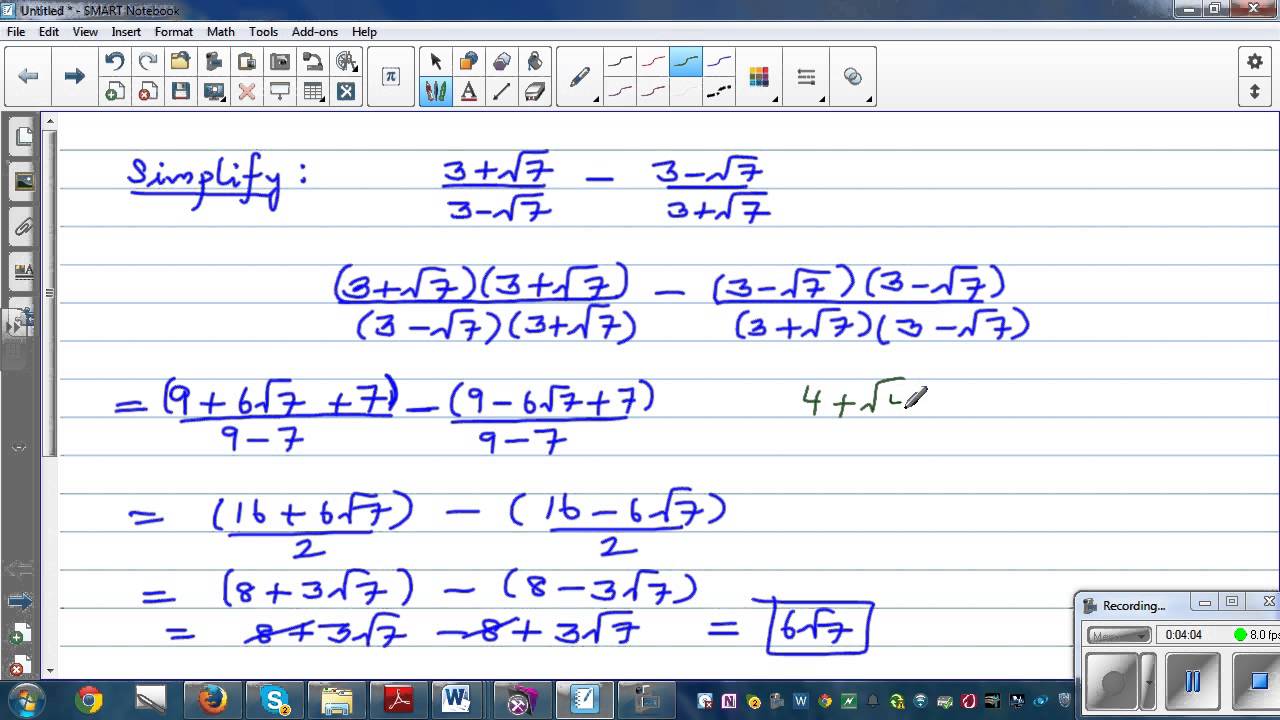 Untitled * - SMART Notebook
File Edit View Insert Format Math Tools Add-ons Help
π
A
Simplify: (3+√7)/(3-√7) - (3-√7)/(3+√7)
(3+√7)(3+√7)/(3-√7)(3+√7) - (3-√7)(3-√7)/(3+√7)(3-√7)
= (9+6√7+7)/(9-7) - (9-6√7+7)/(9-7) 4+√
= (16+6√7)/2 - (16-6√7)/2
= (8+3√7) - (8-3√7)
= 8+3√7 -8+3√7 = 6√7
Recording...
0:04:04 8.0 fps
S 2 W
N W